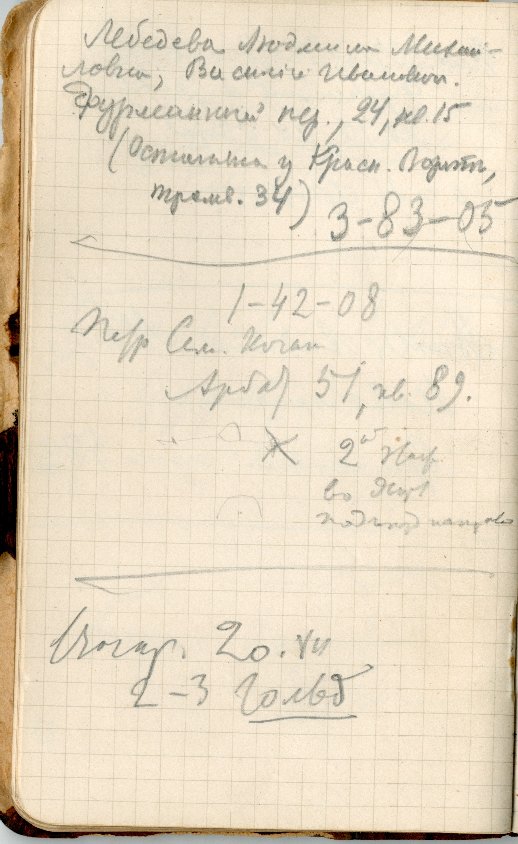 Лебедева Людмила Михай-
ловна, Василий Иванович.
Фурманный пер., 24, кв. 15
(Остановка у Красн. Ворот,
трамв. 34) 3-83-05
1-42-08
Петр Сем. Коган
Арбат 51, кв. 89.
2ой
во
подъезд
20. VII
2-3 Гольд